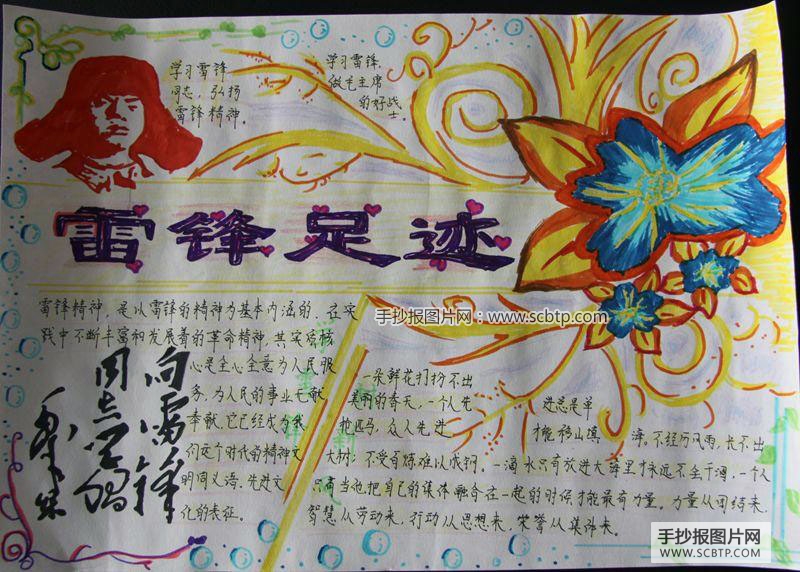 学习雷锋
同志，弘扬
雷锋精神。
学习雷锋，
做毛主席
的好战
士。
雷锋足迹
雷锋精神，是以雷锋的精神为基本内涵的，在实
践中不断丰富和发展着的革命精神，其实质核
心是全心全意为人民服
务，为人民的事业无献
奉献，它已经成为我
们这个时代的精神文
明同义语、先进文
化的表征。
向雷锋
同志学习
毛泽东
手抄报图片网：www.scbtp.com
一朵鲜花打扮不出
美丽的春天，一个人先 进总是单
枪匹马，众人先进 才能移山填 海。不经历风雨，长不出
大树，不受百炼难以成钢。一滴水只有放进大海里才永远不会干涸，一个人
只有当他把自己的集体融合在一起的时候才能最有力量。力量从团结来，
智慧从劳动来，行动从思想来，荣誉从集体来。
手抄报图片网
WWW.SCBTP.COM